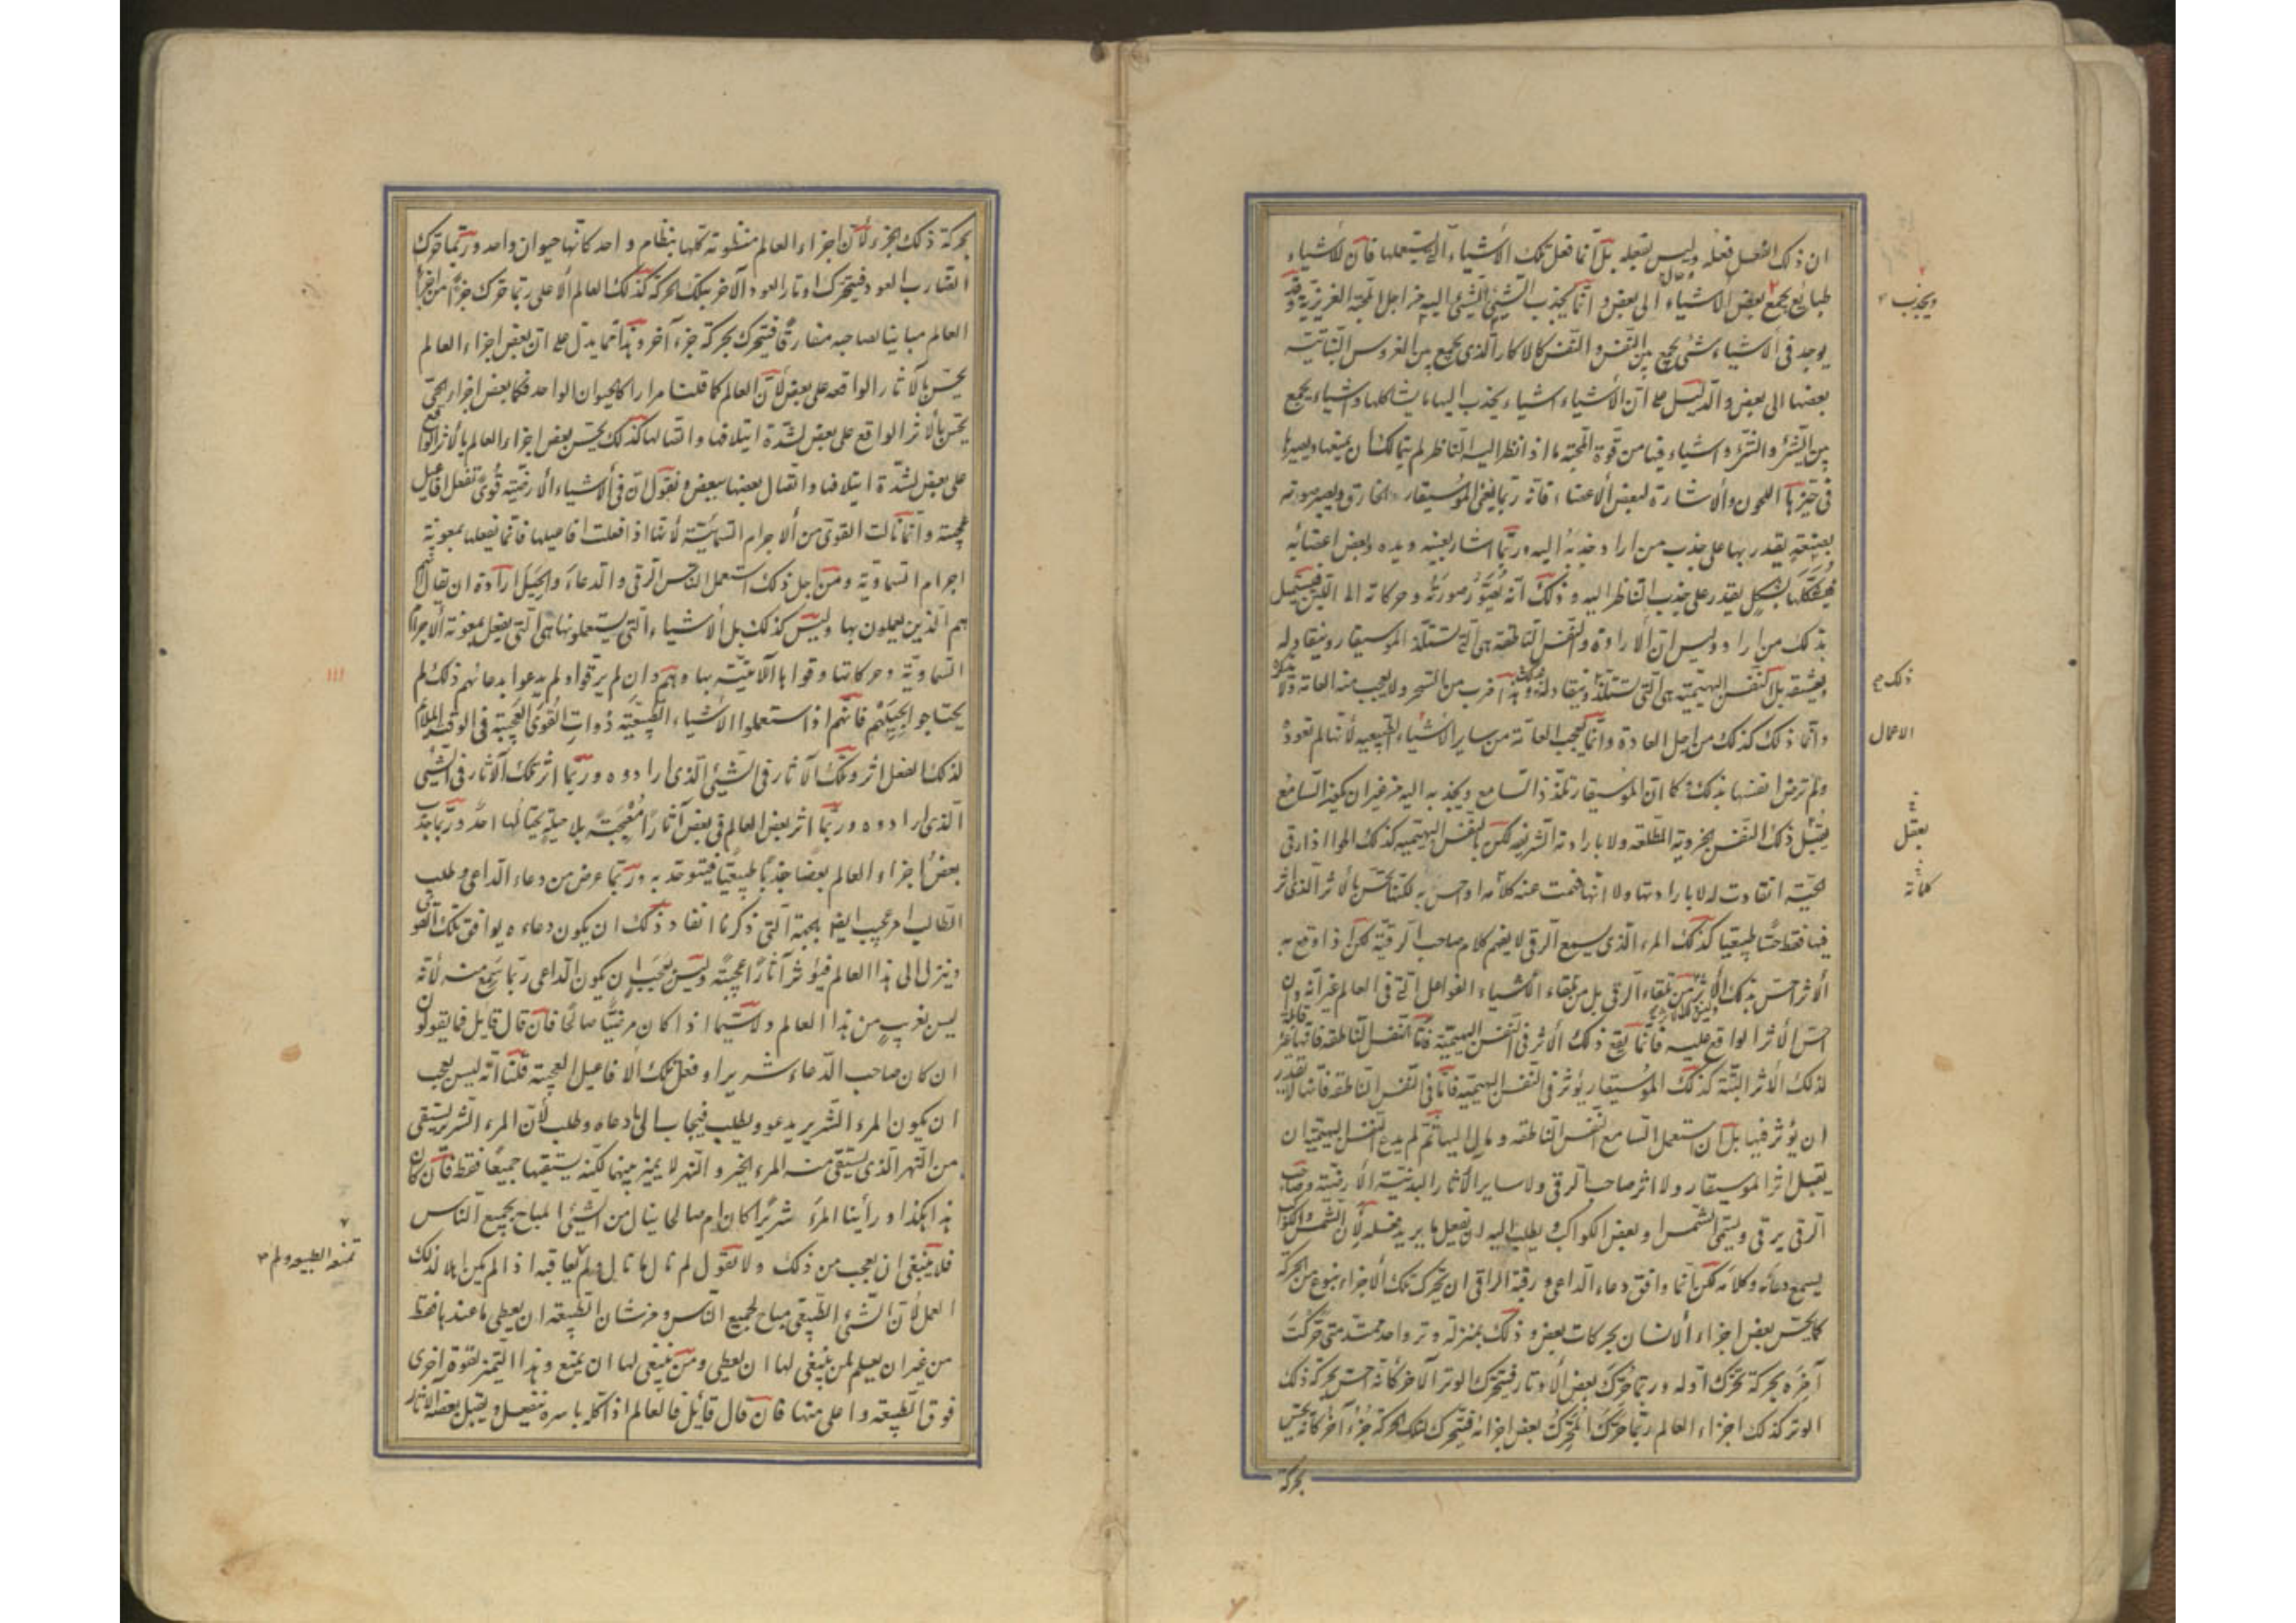 ان ذلك الفعل فعله وليس بفعله بل انما فعل تلك الأشياء التي يستعملها فان للأشياء
طبائع يجمع بعض الأشياء الى بعض وانما يجذب الشيئ الشيئ اليه من اجل المحبة الغريزية وقد
يوجد في الأشياء شئ يجمع بين النفس والنفس كالاكار الذي يجمع بين الغروس النباتية
بعضها الى بعض والدليل على ان الأشياء اشياء يجذب اليها ما يشاكلها واشياء يجمع
بين الشئ والشئ واشياء فيها من قوة المحبة ما اذا نظر اليه الناظر لم يتمالك ان يتبعها ويصير
في حيزها اللحون والاشارة لبعض الاعضاء فانه ربما يغنى الموسيقار الحاذق ويصير صوته
بصنعة يقدر بها على جذب من اراد جذبه اليه وربما اشار بعينه ويده وبعض اعضائه
فيشكلها بشكل يقدر على جذب الناظر اليه وذلك انه يصور صورته وحركاته الى اللين فيستميل
بذلك من اراد وليس ان الارادة والنفس الناطقة هي التي تستلذ الموسيقار وينقاد له
ويعشقه بل النفس البهيمية هي التي تستلذ وينقاد له وهذا ضرب من السحر ولا يعجب منه العامة
وانما ذلك كذلك من اجل العادة وانما يعجب العامة من ساير الأشياء الطبيعيه لانها لم تعود
ولم ترض انفسها بذلك فكما ان الموسيقار تلذذ السامع ويجذبه اليه من غير ان يكون السامع
يقبل ذلك النفس الجزوية الطلقه ولا بارادته الشريفه لكن بالنفس البهيميه كذلك الحوا اذا رقى
الحية انقادت له لا بارادتها ولا انها فهمت عنه كلامه او حس به لكنها تحس بالأثر الذي اثر
فيها فقط حسا طبيعيا كذلك المرء الذي يسمع الرقى لا يفهم كلام صاحب الرقية لكن اذا وقع به
الأثر حس بذلك الأثر من تلقاء الرقى بل من تلقاء الأشياء الفواعل التي في العالم غير انه وان
احس الأثر الواقع عليه فانما يقع ذلك الأثر في النفس البهيمية فاما النفس الناطقه فانها غير
لذلك الأثر البتة كذلك الموسيقار يؤثر في النفس البهيمية فاما في النفس الناطقه فانها لا تقدر
ان يؤثر فيها بل ان استعمل السامع النفس الناطقه ومال اليها ثم لم يدع النفس البهيمية ان
يقبل اثر الموسيقار ولا اثر صاحب الرقى ولا ساير الآثار البدنية الأرضية وصاحب
الرقى يرقى ويسمى الشمس او بعض الكواكب ويطلب اليه ان يفعل ما يريد فعله لأن الشمس والكواكب
يسمع دعائه وكلامه لكن انما وافق دعاء الداعي ورقية الراقى ان تحركت تلك الأجزاء بنوع من الحركة
كما يحس بعض اجزاء الانسان بحركات بعض وذلك بمنزلة وتر واحد ممتد متى حركت
آخره بحركة تحرك اوله وربما حرك بعض الأوتار فيتحرك الوتر الآخر كانه احس بحركة ذلك
الوتر كذلك اجزاء العالم ربما حرك المحرك بعض اجزائه فيتحرك لتلك الحركة جزء آخر كانه يحس
بحركة
ويجذب
ذلك
الاعمال
يعقل
كلمانه
بحركة ذلك الجزء لأن اجزاء العالم منظومة كلها بنظام واحد كانها حيوان واحد وربما حرك
الضارب العود فيتحرك اوتار العود الآخر بتلك الحركة كذلك العالم الأعلى ربما حرك جزءا من اجزاء
العالم مباينا لصاحبه مفارقا فيتحرك بحركة جزء آخر وهذا مما يدل على ان بعض اجزاء العالم
يحس بالآثار الواقعه على بعض لأن العالم كما قلنا مرارا كالحيوان الواحد فكما بعض اجزاء الحي
يحس بالأثر الواقع على بعض لشدة ايتلافها واتصالها كذلك يحس بعض اجزاء العالم بالأثر الواقع
على بعض لشدة ايتلافها واتصال بعضها ببعض ونقول ان في الأشياء الأرضية قوى تفعل افاعيل
عجيبة وانما نالت القوى من الأجرام السمائية لأنها اذا فعلت افاعيلها فانما تفعلها بمعونة
اجرام السماوية ومن اجل ذلك استعمل الناس الرقى والدعاء والحيل ارادة ان يقال انهم
هم الذين يعملون بها وليس كذلك بل الأشياء التي يستعملونها هي التي يفعل بمعونة الأجرام
السماوية وحركاتها وقواها الآتية بها وهم وان لم يرقوا ولم يدعوا بدعائهم ذلك لم
يحتاجوا بحيلهم فانهم اذا استعملوا الأشياء الطبيعية ذوات القوى العجيبة في الوقت الملائم
لذلك الفعل اثروا تلك الآثار في الشيئ الذي ارادوه وربما اثر تلك الآثار في الشيئ
الذي ارادوه وربما اثر بعض العالم في بعض آثارا معجبة بلا حيلة يحتالها احد وربما جذب
بعض اجزاء العالم بعضا جذبا طبيعيا فيتوحد به وربما عرض من دعاء الداعي وطلب
الطالب امر عجيب ايضا بالجهة التي ذكرنا انفا وذلك ان يكون دعاءه يوافق تلك القوى
وينزل الى هذا العالم فيؤثر آثارا عجيبة وليس بعجب ان يكون الداعي ربما سمع منه لأنه
ليس بغريب من هذا العالم ولا سيما اذا كان مرضيا صالحا فان قال قايل فما يقولون
ان كان صاحب الدعاء شريرا وفعل تلك الأفاعيل العجيبة قلنا انه ليس يعجب
ان يكون المرء الشرير يدعو ويطلب فيجاب الى ما دعاه وطلب لأن المرء الشرير يستقى
من النهر الذي يستقى منه المرء الخير والنهر لا يميز بينهما لكنه يسقيهما جميعا فقط فان كان
هذا هكذا ورأينا المرء شريرا كان ام صالحا ينال من الشئ المباح لجميع الناس
فلا ينبغي ان يعجب من ذلك ولا نقول لم نال ما نال ولم يعاقبه اذ لم يكن اهلا لذلك
العمل لأن الشئ الطبيعي مباح لجميع الناس ومن شان الطبيعة ان يعطى ما عندها فقط
من غير ان يعلم لمن ينبغي لها ان يعطى ومن ينبغي لها ان يمنع وهذا التميز لقوة اخرى
فوق الطبيعة واعلى منها فان قال قائل فالعالم اذا كله باسره ينفعل ويقبل بعضه الآثار
تمنعه الطبيعه ولم